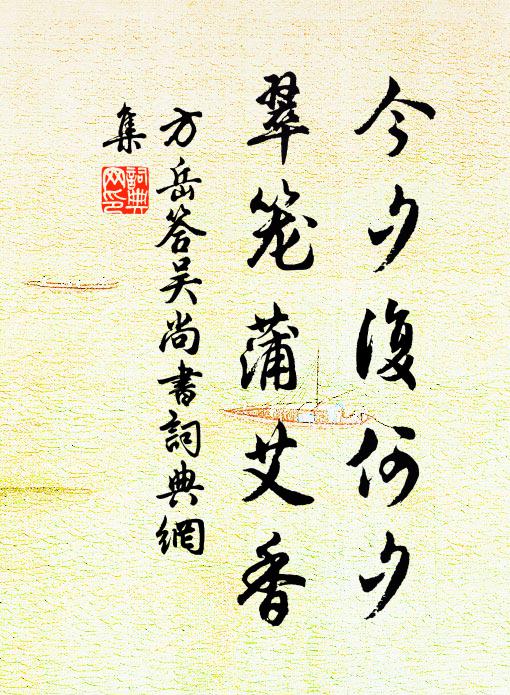 今夕復何夕
翠笼蒲艾香
方岳答吴尚書詞典網
集
詞典
网印